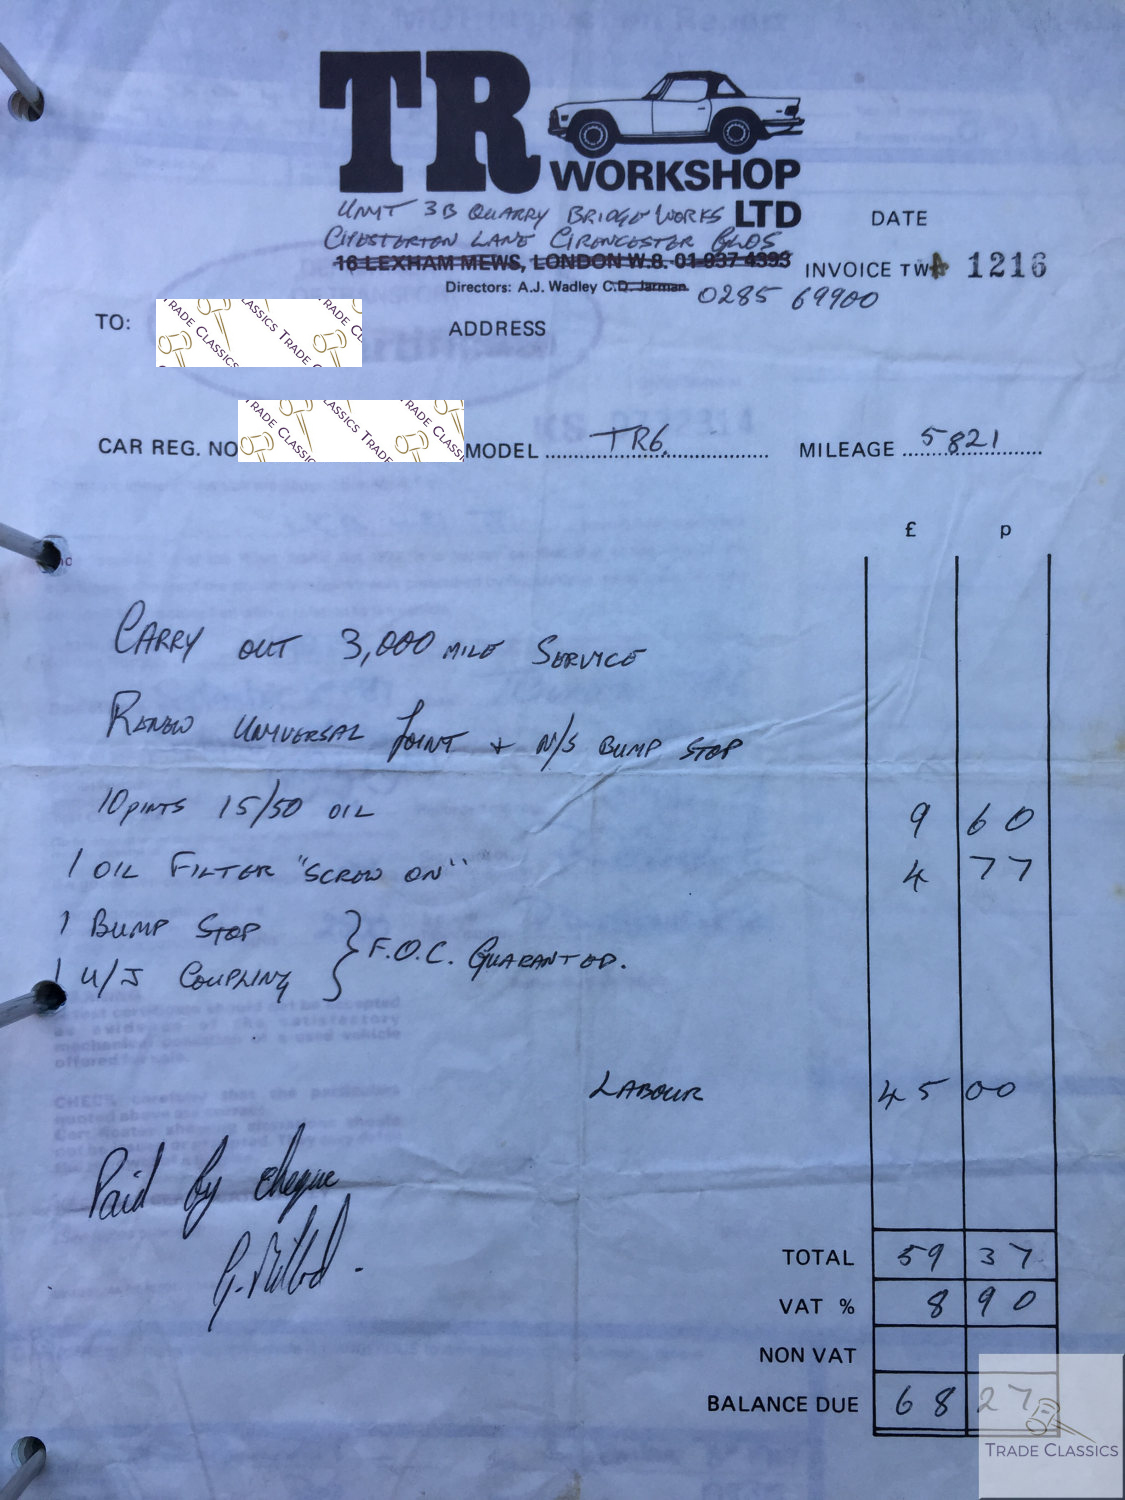 TR
WORKSHOP
LTD
UNIT 3B QUARRY BRIDGE WORKS
CHESTERTON LANE CIRENCESTER GLOS
16 LEXHAM MEWS, LONDON W.8. 01-937 4393
Directors: A.J. Wadley C.D. Jarman.
0285 69900
DATE
INVOICE TW A 1216
TO:
ADDRESS
CAR REG. NO
MODEL TR6.
MILEAGE 5821
£ p
CARRY OUT 3,000 MILE SERVICE
RENEW UNIVERSAL JOINT + N/S BUMP STOP
10 PINTS 15/50 OIL 9 60
1 OIL FILTER "SCREW ON" 4 77
1 BUMP STOP
1 U/J COUPLING
F.O.C. GUARANTED.
LABOUR 45 00
Paid by cheque
TOTAL 59 37
VAT % 8 90
NON VAT
BALANCE DUE 68 27
TRADE CLASSICS